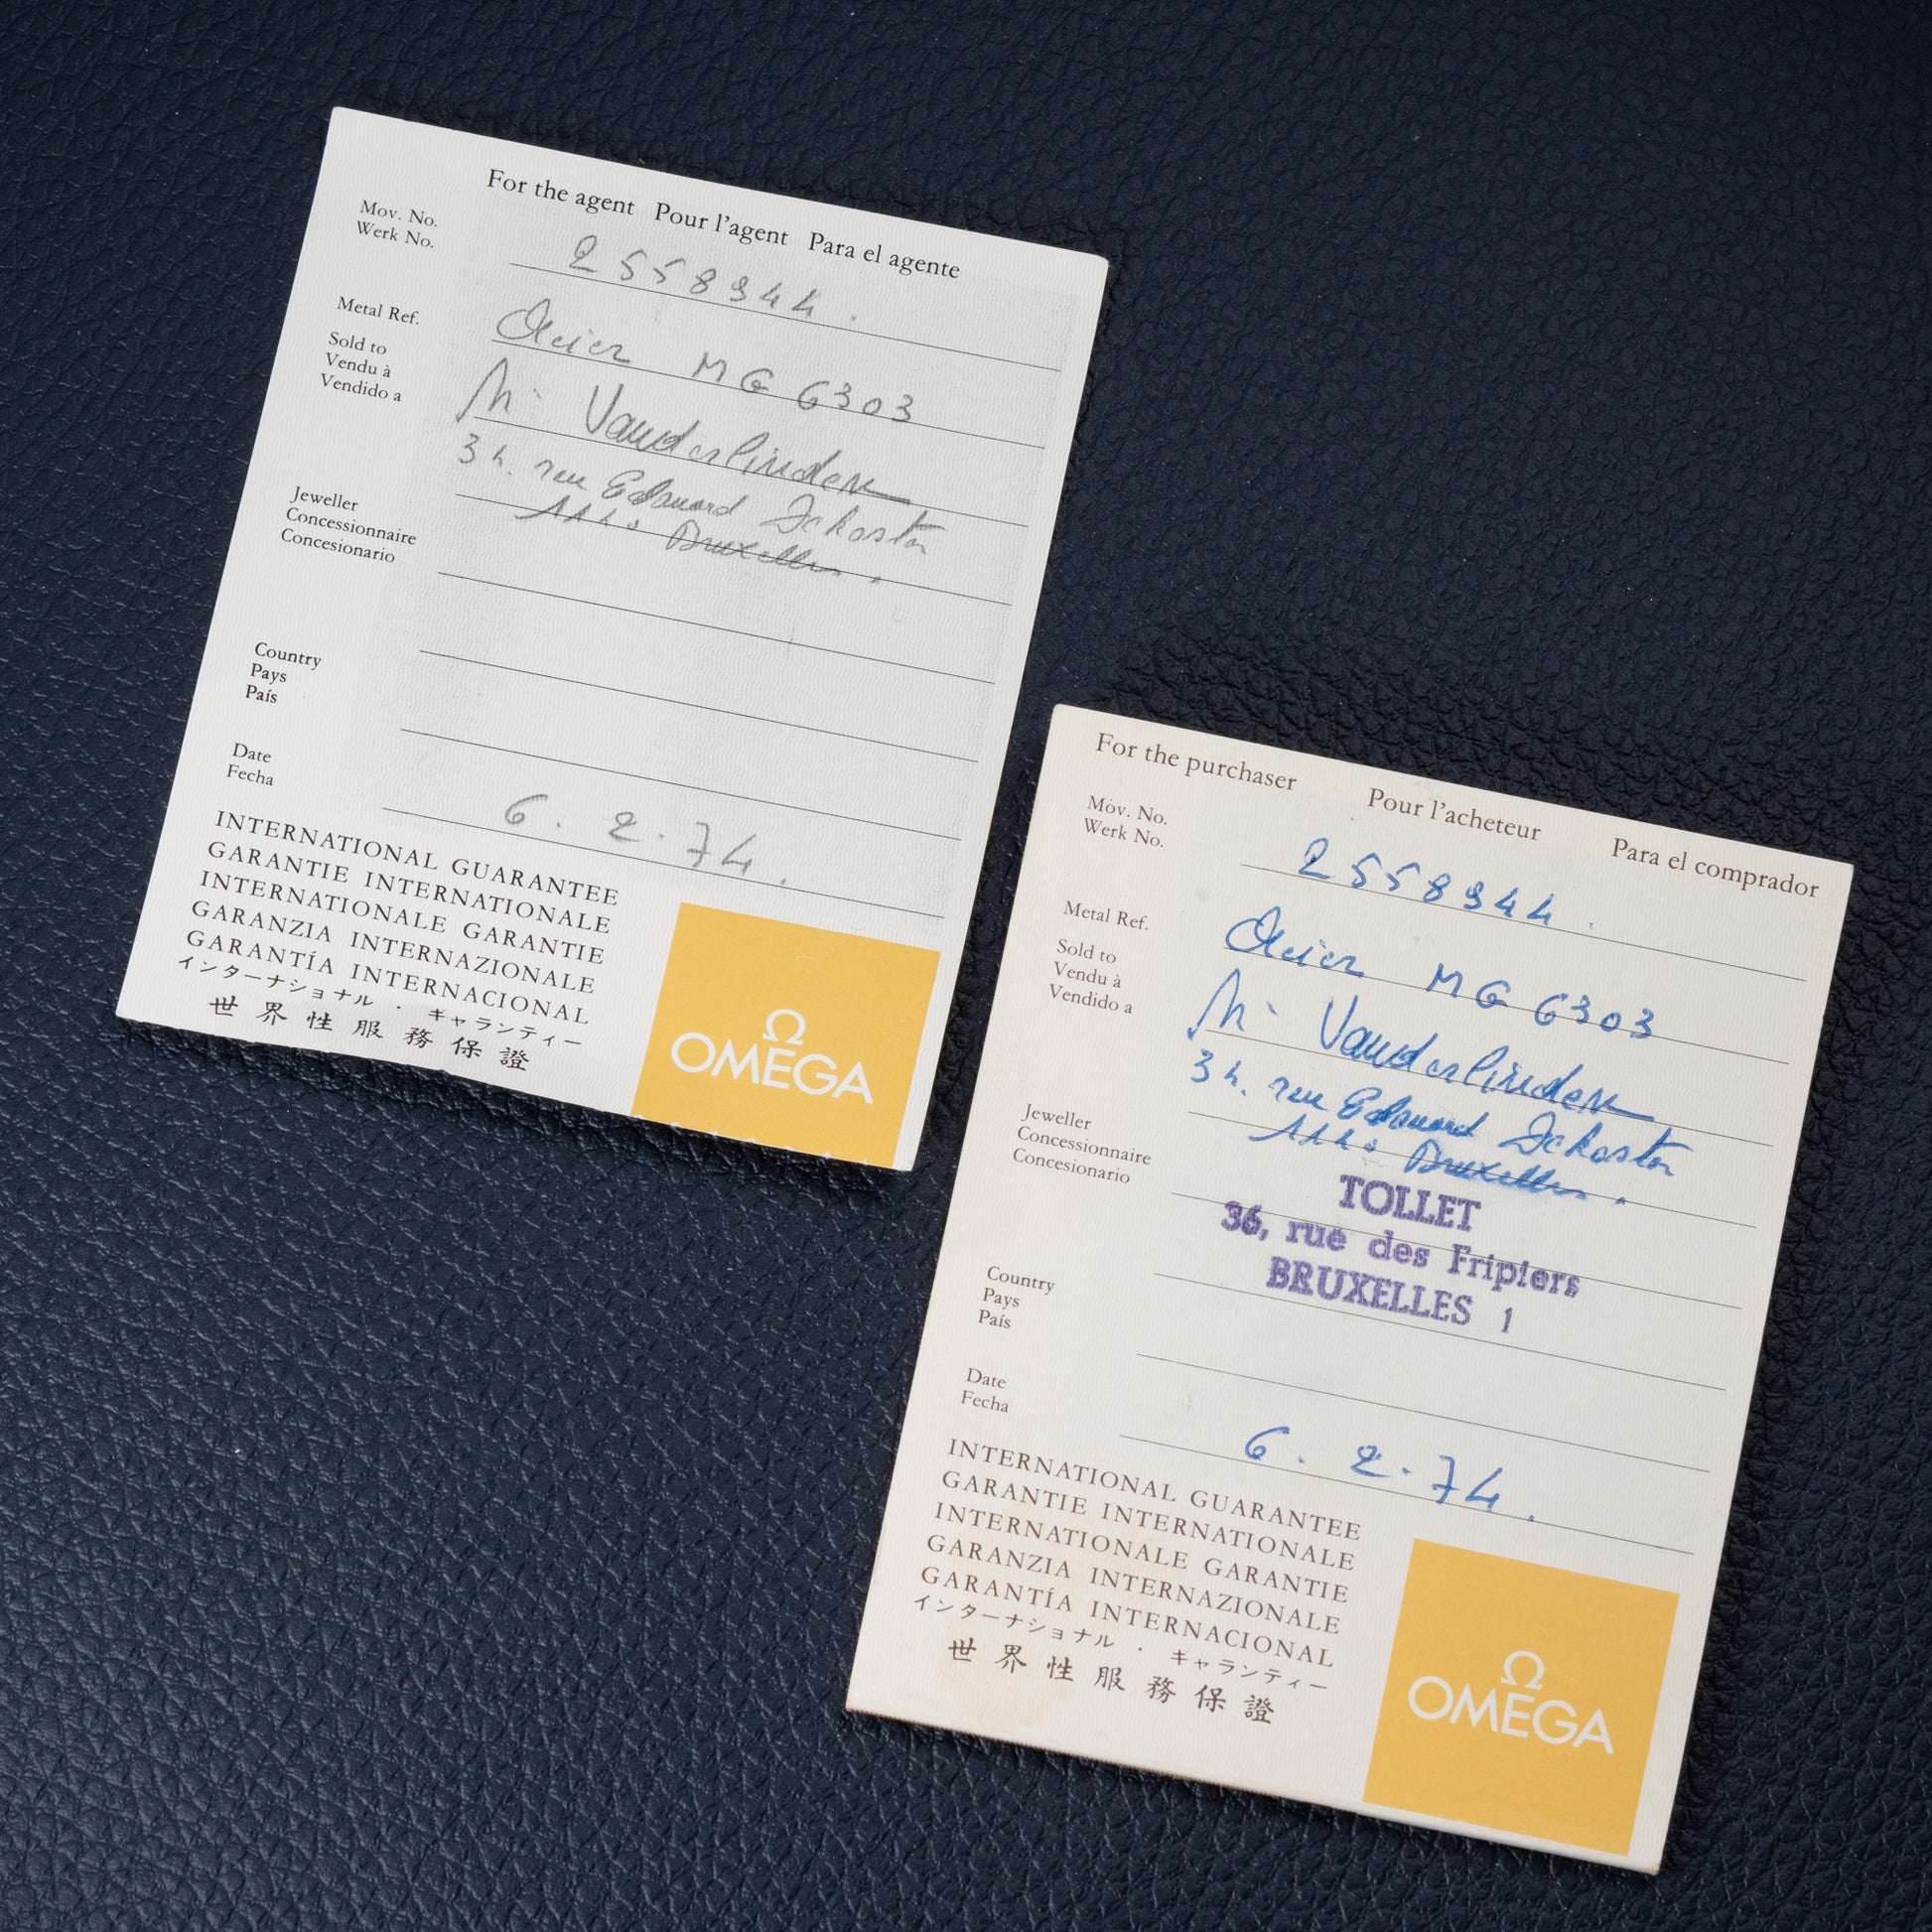 For the agent Pour l'agent Para el agente
Mov. No.
Werk No.
2558944.
Metal Ref.
Acier MG 6303
Sold to
Vendu à
Vendido a
Mr Vanderlinden
rue Edouard
Bruxelles.
Jeweller
Concessionnaire
Concesionario
Country
Pays
País
Date
Fecha
6. 2. 74.
INTERNATIONAL GUARANTEE
GARANTIE INTERNATIONALE
INTERNATIONALE GARANTIE
GARANZIA INTERNAZIONALE
GARANTÍA INTERNACIONAL
インターナショナル・ギャランティー
世界性服務保證
Ω
OMEGA
For the purchaser Pour l'acheteur Para el comprador
Mov. No.
Werk No.
2558944.
Metal Ref.
Acier MG 6303
Sold to
Vendu à
Vendido a
Mr Vanderlinden
rue Edouard
Bruxelles.
Jeweller
Concessionnaire
Concesionario
TOLLET
36, rue des Fripiers
BRUXELLES 1
Country
Pays
País
Date
Fecha
6. 2. 74.
INTERNATIONAL GUARANTEE
GARANTIE INTERNATIONALE
INTERNATIONALE GARANTIE
GARANZIA INTERNAZIONALE
GARANTÍA INTERNACIONAL
インターナショナル・ギャランティー
世界性服務保證
Ω
OMEGA